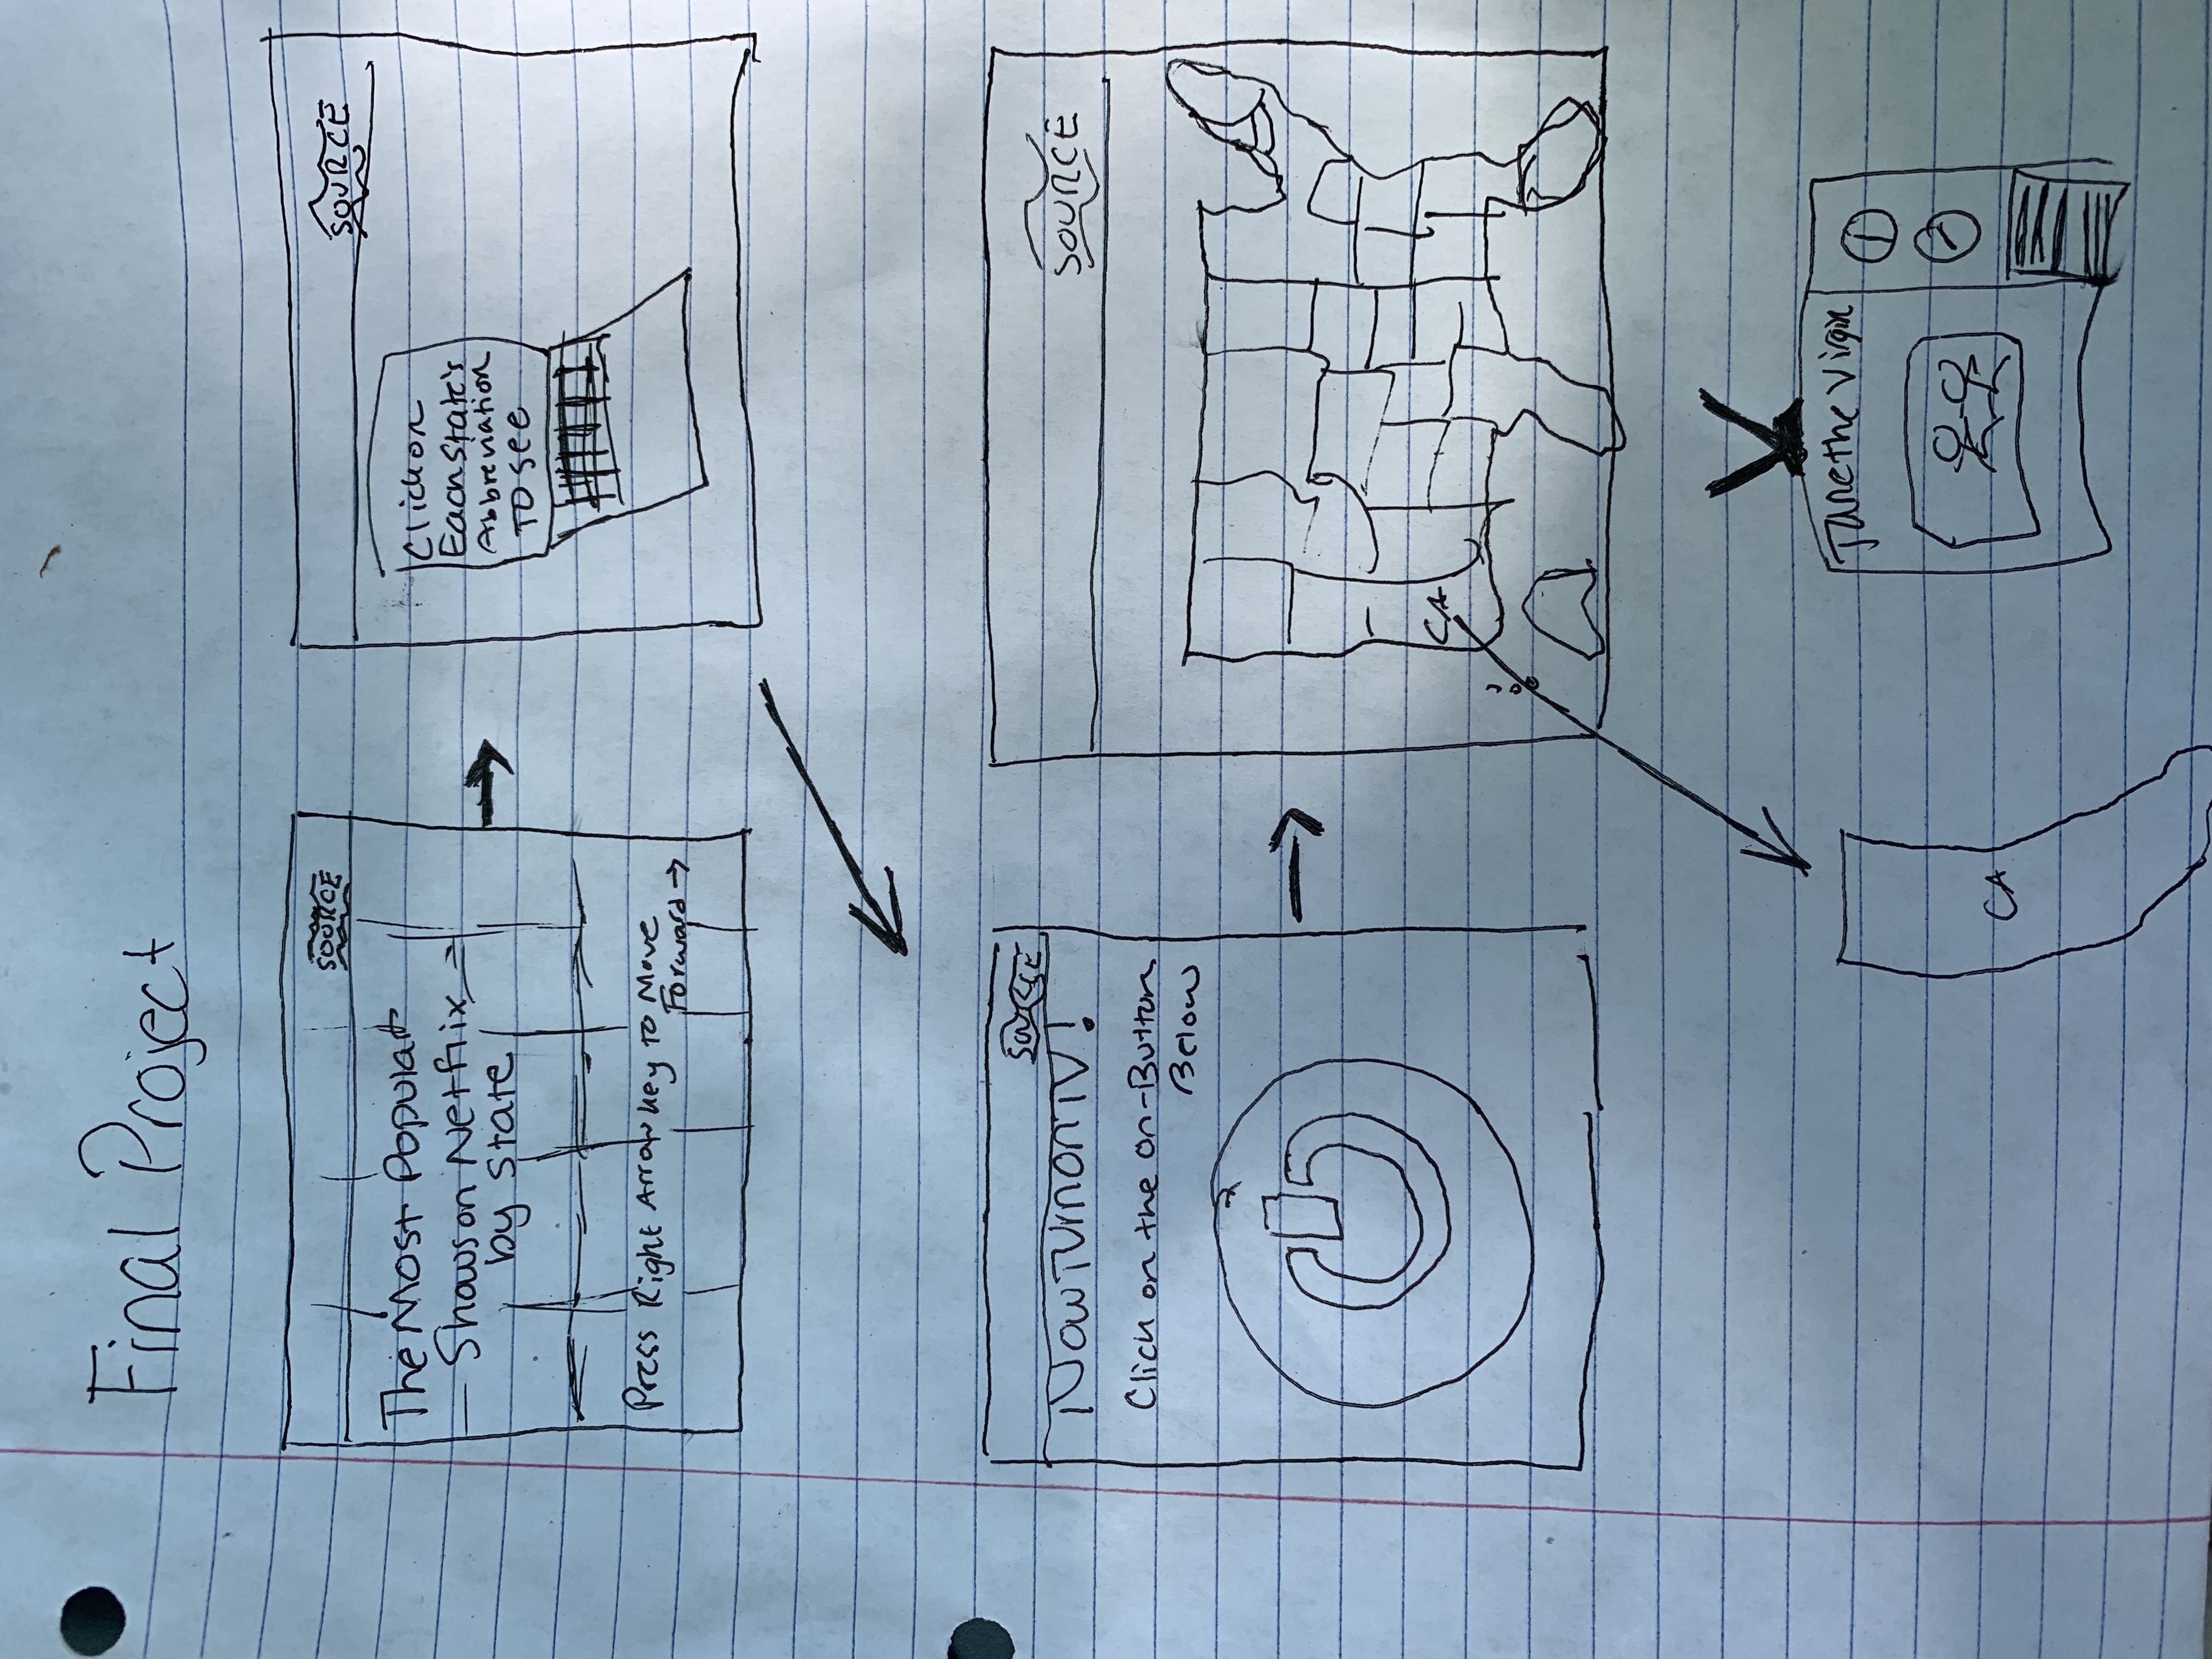 Final Project
SOURCE
The Most Popular
Shows on Netflix
by State
Press Right Arrow Key To Move
Forward →
SOURCE
Click on
Each State's
Abbreviation
To see
SOURCE
Now Turn on TV!
Click on the on-Button
Below
SOURCE
CA
CA
Jane the Virgin